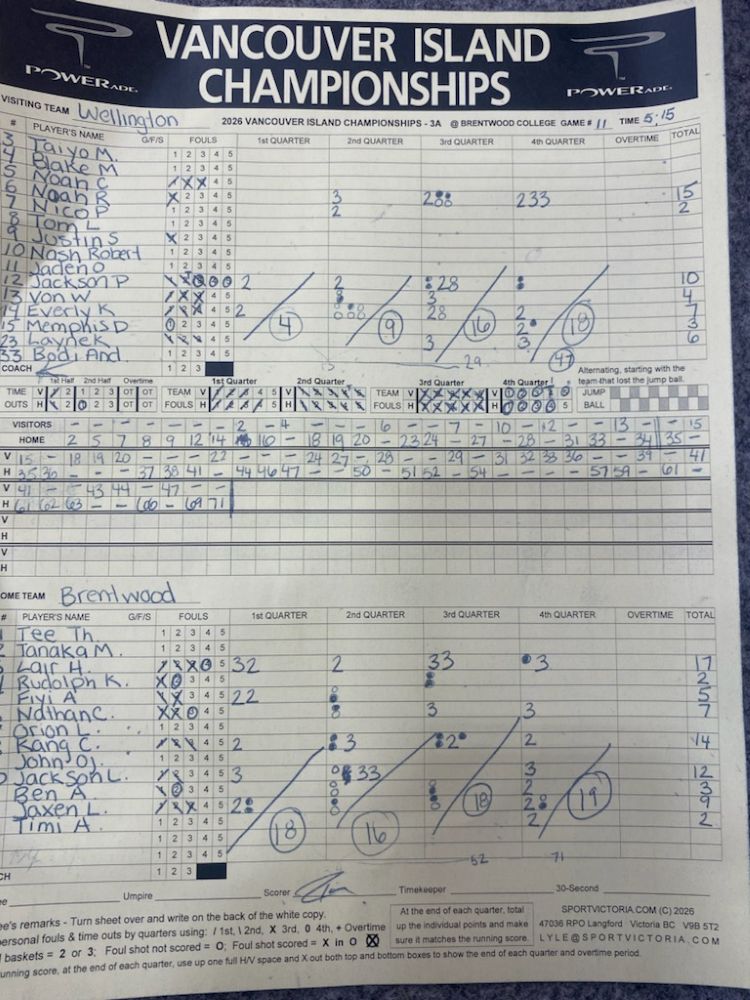 VANCOUVER ISLAND
CHAMPIONSHIPS
POWERADE
POWERADE
VISITING TEAM Wellington
2026 VANCOUVER ISLAND CHAMPIONSHIPS - 3A @ BRENTWOOD COLLEGE GAME # 11 TIME 5:15
# PLAYER'S NAME G/F/S FOULS 1st QUARTER 2nd QUARTER 3rd QUARTER 4th QUARTER OVERTIME TOTAL
3 Taiyo M. 1 2 3 4 5
4 Blake M 1 2 3 4 5
5 Noah C 4 5
6 Noah R 2 3 4 5 3 2 233 15
7 Nico P 1 2 3 4 5 2 2
8 Tom L 1 2 3 4 5
9 Justin S 2 3 4 5
10 Nash Robert 1 2 3 4 5
11 Jaden O 1 2 3 4 5
12 Jackson P 2 2 28 10
13 Von W 4 5 3 4
14 Everly K 4 5 2 28 2 7
15 Memphis D 2 3 4 5 2 3
23 Layne K 4 5 3 2 6
33 Bodi And. 1 2 3 4 5
4 9 16 18
COACH 1 2 3 29 47
1st Half 2nd Half Overtime 1st Quarter 2nd Quarter 3rd Quarter 4th Quarter
Alternating, starting with the team that lost the jump ball.
TIME OUTS V H TEAM FOULS V H TEAM FOULS V H JUMP BALL
VISITORS - - - - - - 2 - 4 - - - 6 - - 7 - 10 - 12 - - 13 - - 15
HOME - 2 5 7 8 9 12 14 16 - 18 19 20 - 23 24 - 27 - 28 - 31 33 - 34 35 -
V 15 - 18 19 20 - - - 22 - - - 24 27 - 28 - - 29 - 31 32 38 36 - - 39 - 41
H 35 36 - - - 37 38 41 - 44 46 47 - - 50 - 51 52 - 54 - - - - 57 59 - 61 -
V 41 - - 43 44 - 47 - -
H 61 62 63 - - 66 - 69 71
V
H
V
H
HOME TEAM Brentwood
# PLAYER'S NAME G/F/S FOULS 1st QUARTER 2nd QUARTER 3rd QUARTER 4th QUARTER OVERTIME TOTAL
Tee Th. 1 2 3 4 5
Tanaka M. 1 2 3 4 5
Lair H. 5 32 2 33 3 17
Rudolph K. 3 4 5 2
Fiyi A 3 4 5 22 5
Nathan C. 4 5 3 3 7
Orion L. 1 2 3 4 5
Kang C. 4 5 2 3 2 2 14
John Oj. 1 2 3 4 5
Jackson L. 4 5 3 33 3 12
Ben A 3 4 5 2 3
Jaxen L. 4 5 2 2 9
Timi A. 1 2 3 4 5 2 2
18 16 18 19
1 2 3 4 5
1 2 3 4 5
CH 1 2 3 52 71
Umpire Scorer Timekeeper 30-Second
ee's remarks - Turn sheet over and write on the back of the white copy.
ersonal fouls & time outs by quarters using: / 1st, \ 2nd, X 3rd, 0 4th, + Overtime
baskets = 2 or 3; Foul shot not scored = O; Foul shot scored = X in O
unning score, at the end of each quarter, use up one full H/V space and X out both top and bottom boxes to show the end of each quarter and overtime period.
At the end of each quarter, total
up the individual points and make
sure it matches the running score.
SPORTVICTORIA.COM (C) 2026
47036 RPO Langford Victoria BC V9B 5T2
LYLE@SPORTVICTORIA.COM